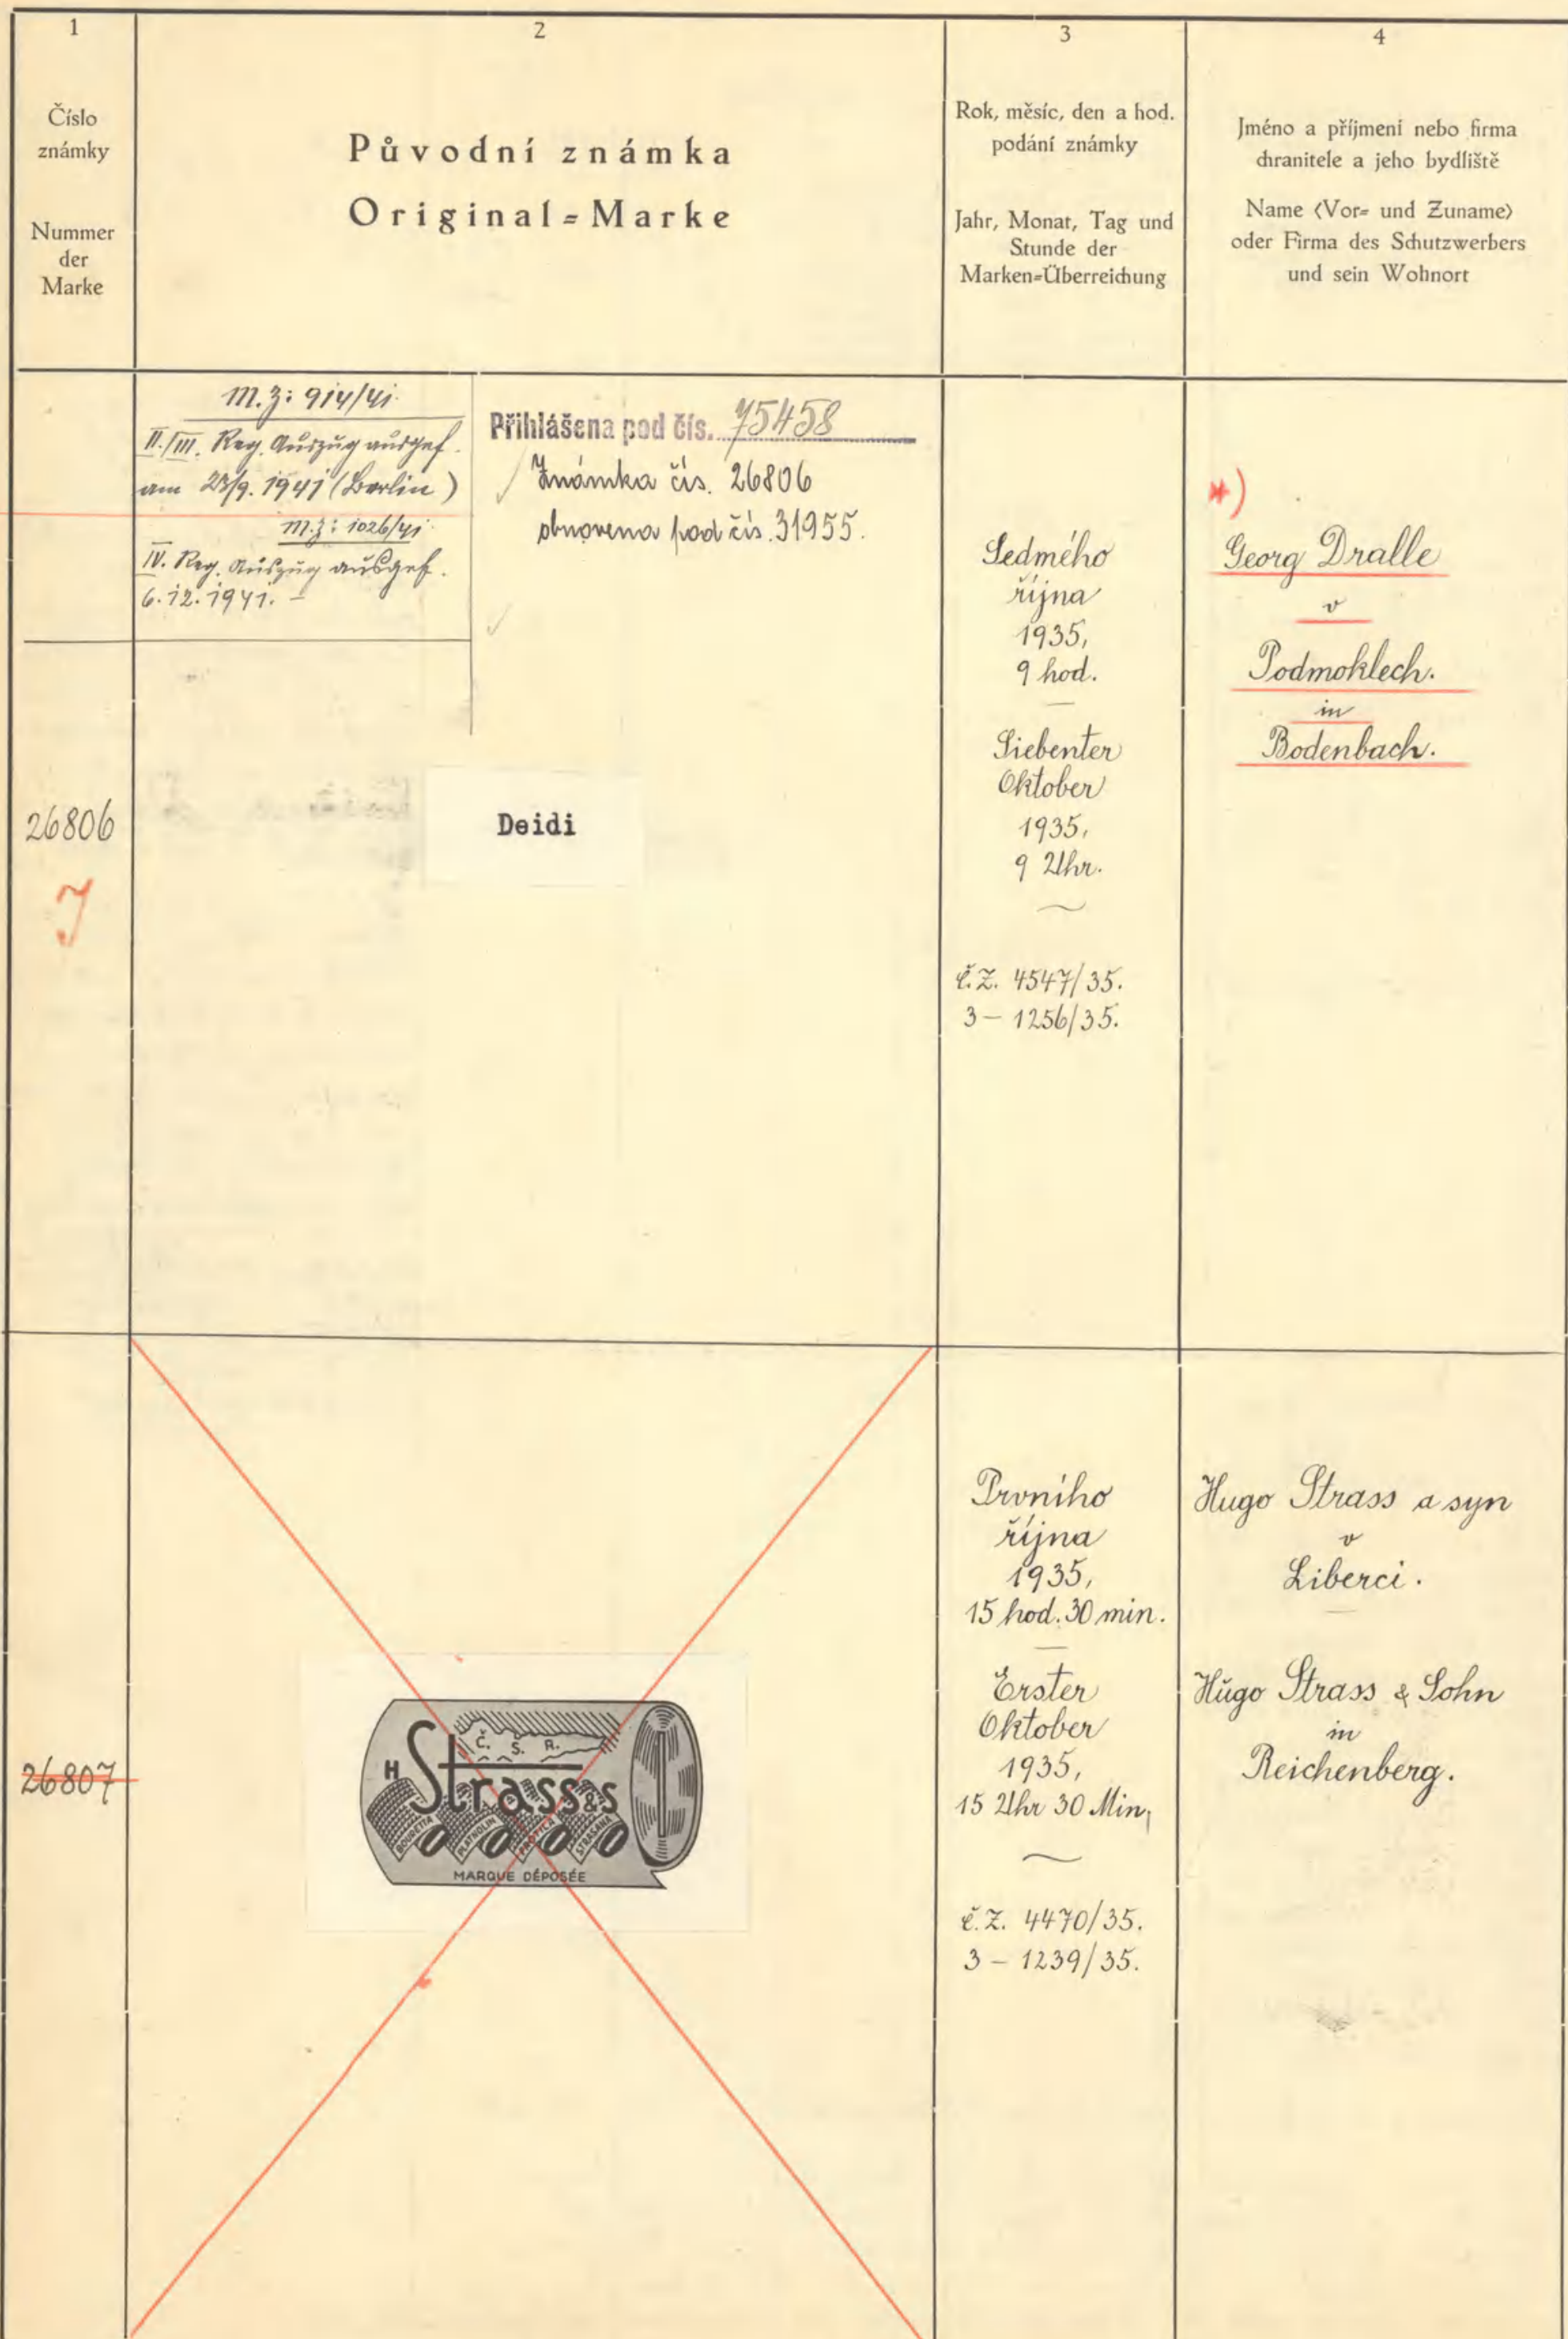 1
Číslo
známky
Nummer
der
Marke
2
Původní známka
Original=Marke
3
Rok, měsíc, den a hod.
podání známky
Jahr, Monat, Tag und
Stunde der
Marken=Überreichung
4
Jméno a příjmení nebo firma
chranitele a jeho bydliště
Name (Vor= und Zuname)
oder Firma des Schutzwerbers
und sein Wohnort
M.Z: 914/41.
II./III. Reg. Auszug ausgef.
am 23/9. 1941 (Berlin)
M.Z: 1026/41.
IV. Reg. Auszug ausgef.
6.12.1941. –
Přihlášena pod čís. 75458
Známka čís. 26806
obnovena pod čís. 31955.
26806
J
Deidi
Sedmého
října
1935,
9 hod.
Siebenter
Oktober
1935,
9 Uhr.
č.z. 4547/35.
3 – 1256/35.
*)
Georg Dralle
v
Podmoklech.
in
Bodenbach.
26807
Č. S. R.
H Strass & S
BOURETTA
PLATNOLIN
STRASANA
MARQUE DÉPOSÉE
Prvního
října
1935,
15 hod. 30 min.
Erster
Oktober
1935,
15 Uhr 30 Min,
č.z. 4470/35.
3 – 1239/35.
Hugo Strass a syn
v
Liberci.
Hugo Strass & Sohn
in
Reichenberg.